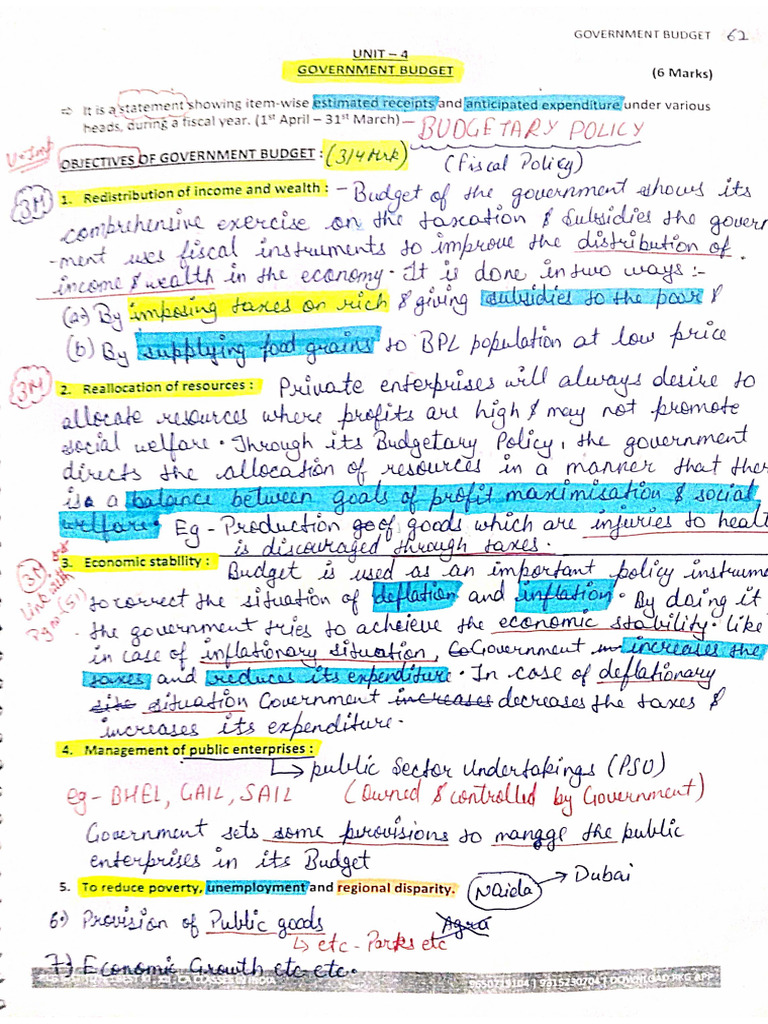 GOVERNMENT BUDGET 62
UNIT – 4
GOVERNMENT BUDGET
(6 Marks)
⇨ It is a statement showing item-wise estimated receipts and anticipated expenditure under various
heads, during a fiscal year. (1st April – 31st March) — BUDGETARY POLICY
V. Imp
OBJECTIVES OF GOVERNMENT BUDGET : (3/4 Mrk) (Fiscal Policy)
3M 1. Redistribution of income and wealth : – Budget of the government shows its
comprehensive exercise on the taxation & subsidies the govern
-ment uses fiscal instruments to improve the distribution of
income & wealth in the economy. It is done in two ways :-
(a) By imposing taxes on rich & giving subsidies to the poor &
(b) By supplying food grains to BPL population at low price
3M 2. Reallocation of resources : Private enterprises will always desire to
allocate resources where profits are high & may not promote
social welfare. Through its Budgetary Policy, the government
directs the allocation of resources in a manner that ther
is a balance between goals of profit maximisation & social
welfare. Eg – Production of goods which are injuries to healt
is discouraged through taxes.
3M 3. Economic stability : Budget is used as an important policy instrume
link with
Pg no (51)
to correct the situation of deflation and inflation. By doing it
the government tries to achieive the economic stability. like
in case of inflationary situation, Government in increases the
taxes and reduces its expenditure. In case of deflationary
site situation Government increases decreases the taxes &
increases its expenditure.
4. Management of public enterprises :
↳ public Sector Undertakings (PSU)
eg – BHEL, GAIL, SAIL (Owned & controlled by Government)
Government sets some provisions to manage the public
enterprises in its Budget
5. To reduce poverty, unemployment and regional disparity. Noida → Dubai
6.) Provision of Public goods Agra
↳ etc – Parks etc
7.) Economic Growth etc etc.
9650719104 | 9315230704 | DOWNLOAD RKG APP